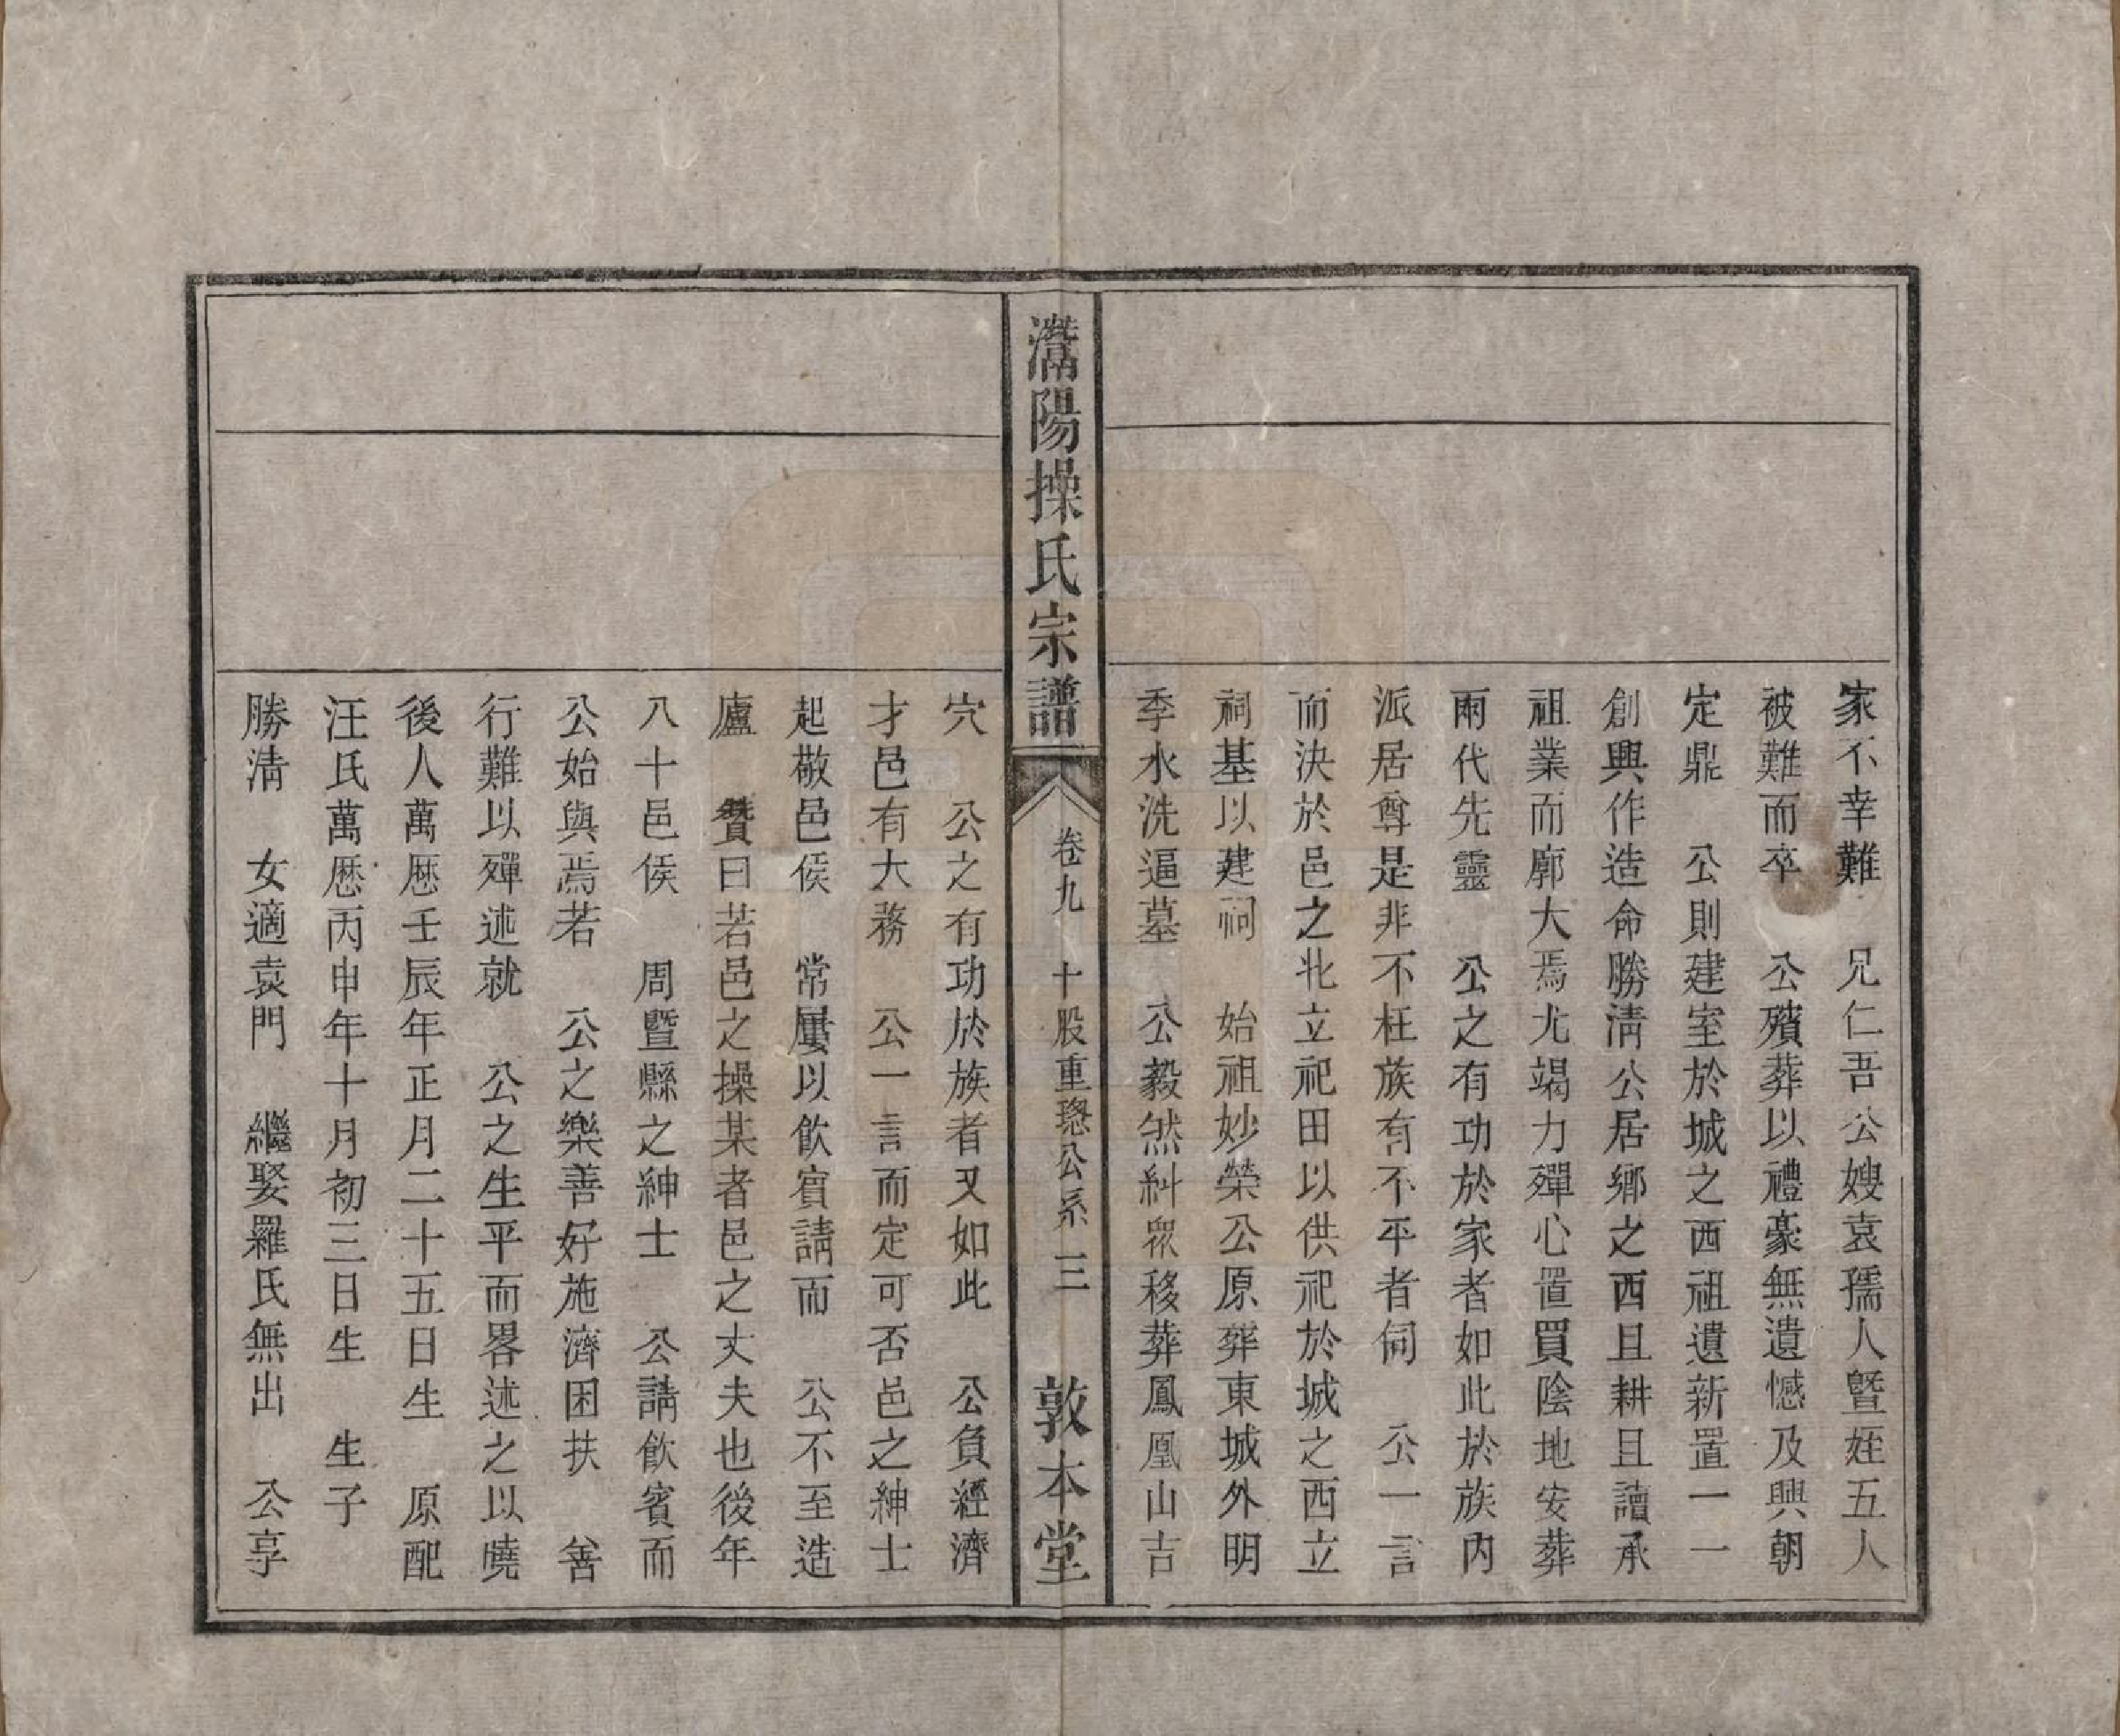 家不幸難　兄仁吾公嫂袁孺人曁姪五人
被難而卒　公殯葬以禮豪無遺憾及興朝
定鼎　公則建室於城之西祖遺新置一一
創興作造命勝淸公居鄉之西且耕且讀承
祖業而廓大焉尤竭力殫心置買陰地安葬
兩代先靈　公之有功於家者如此於族內
派居尊是非不枉族有不平者伺　公一言
而決於邑之北立祀田以供祀於城之西立
祠基以建祠　始祖妙榮公原葬東城外明
季水洗逼墓　公毅然糾眾移葬鳳凰山吉
灊陽操氏宗譜　卷九　十股重璁公系　三　敦本堂
穴　公之有功於族者又如此　公負經濟
才邑有大務　公一言而定可否邑之紳士
起敬邑侯　常屢以飲賓請而　公不至造
廬　贊曰若邑之操某者邑之丈夫也後年
八十邑侯　周曁縣之紳士　公請飲賓而
公始與焉若　公之樂善好施濟困扶　善
行難以殫述就　公之生平而畧述之以曉
後人萬厯壬辰年正月二十五日生　原配
汪氏萬厯丙申年十月初三日生　生子
勝淸　女適袁門　繼娶羅氏無出　公享